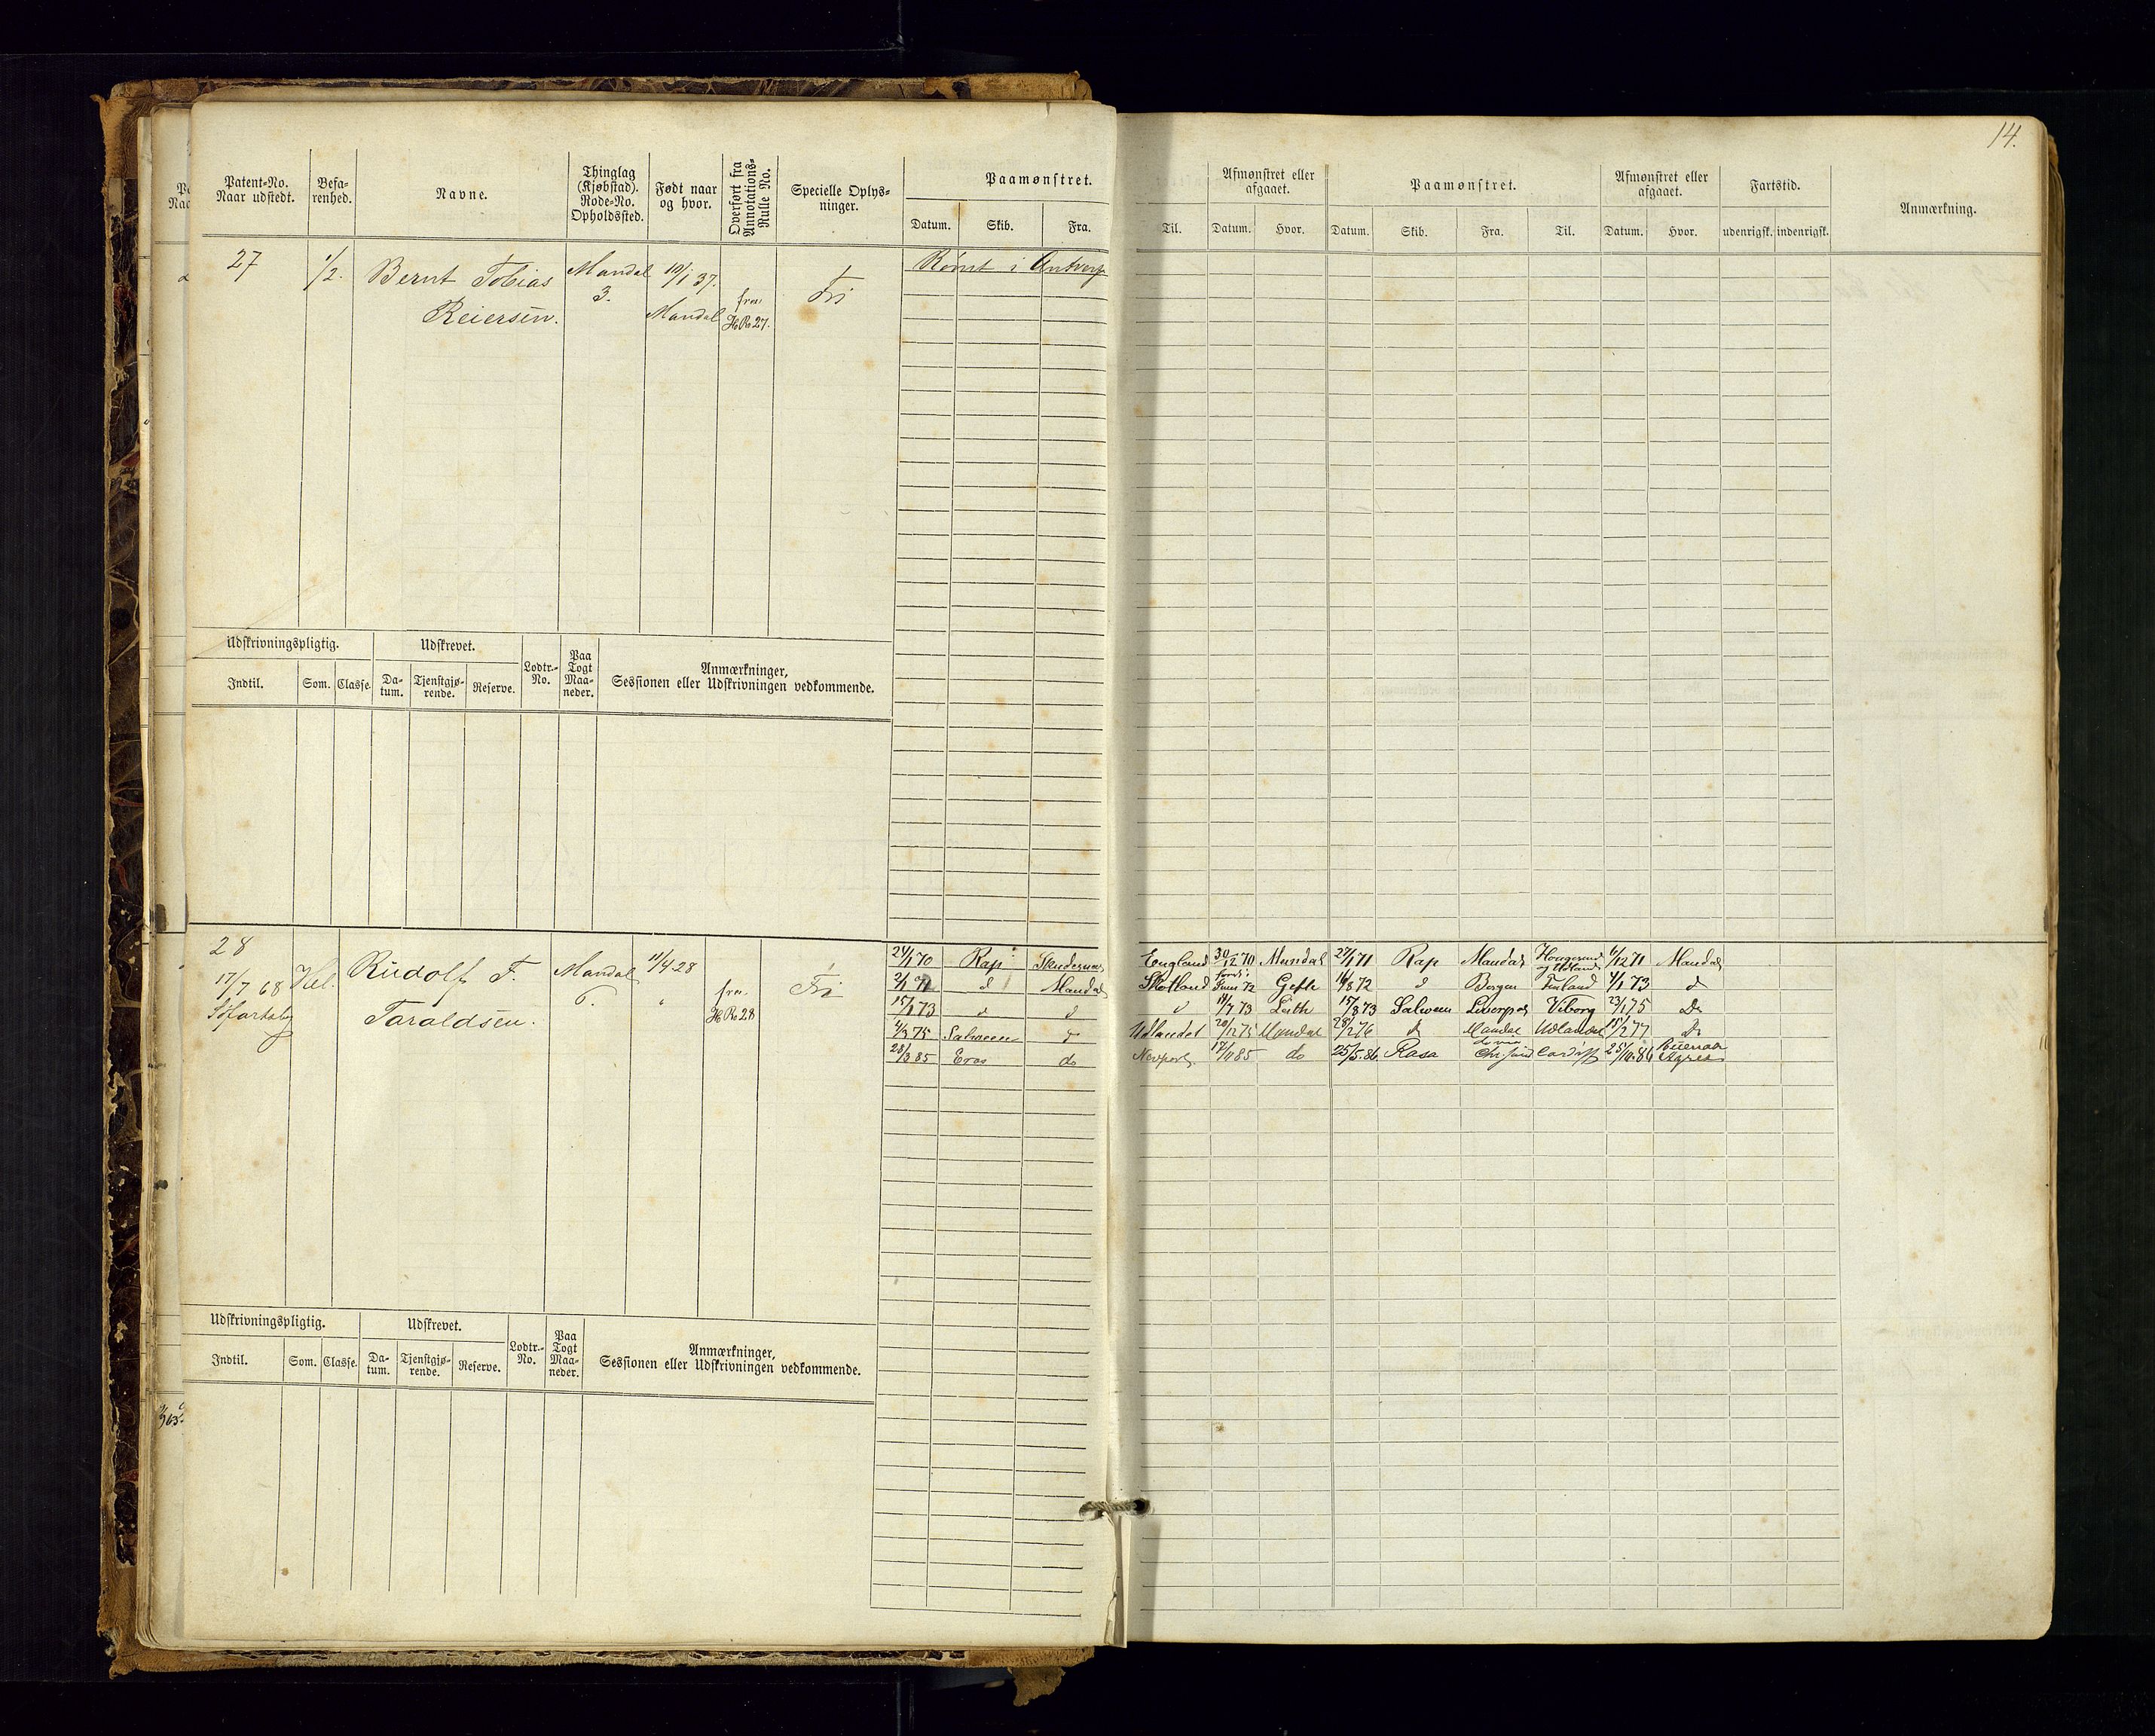 14.
Patent-No. Naar udstedt.
Befarenhed.
Navne.
Thinglag (Kjøbstad). Rode-No. Opholdssted.
Født naar og hvor.
Overført fra Annotations-Rulle No.
Specielle Oplysninger.
Paamønstret.
Datum. Skib. Fra. Til.
Afmønstret eller afgaaet.
Datum. Hvor.
Paamønstret.
Datum. Skib. Fra. Til.
Afmønstret eller afgaaet.
Datum. Hvor.
Fartstid.
udenrigsk. indenrigsk.
Anmærkning.
27 1/2. Bernt Tobias Mandal 10/1 37. Fri Rømt i Antverp
Reiersen. 3. Mandal fra H.R. 27.
Udskrivningspligtig. Udskrevet. Lodtr.-No. Paa Togt Maaneder. Anmærkninger, Sessionen eller Udskrivningen vedkommende.
Indtil. Som. Classe. Datum. Tjenstgjørende. Reserve.
28
17/7 68 Hel. Rudolf F. Mandal 11/4 28 Fri
Taraldsen. 6. " fra H.R. 28
24/1 70 Rap England 30/12 70 Mandal 27/1 71 Rap Mandal 6/12 71 Mandal
d Mandal Skotland 72 Gefle d Bergen Finland 4/1 73 d
15/1 73 d d d 11/7 73 Leith 15/8 73 Salween Liverpool Viborg 23/1 75 Do
75 Salween d Udlandet 20/12 75 Mandal 28/2 76 d Mandal Udlandet 77 Do
28/3 85 Eros do Newport 85 do 25/5 86 Rosa Cardiff 25/10 86 Buenos Ayres
Udskrivningspligtig. Udskrevet. Lodtr.-No. Paa Togt Maaneder. Anmærkninger, Sessionen eller Udskrivningen vedkommende.
Indtil. Som. Classe. Datum. Tjenstgjørende. Reserve.